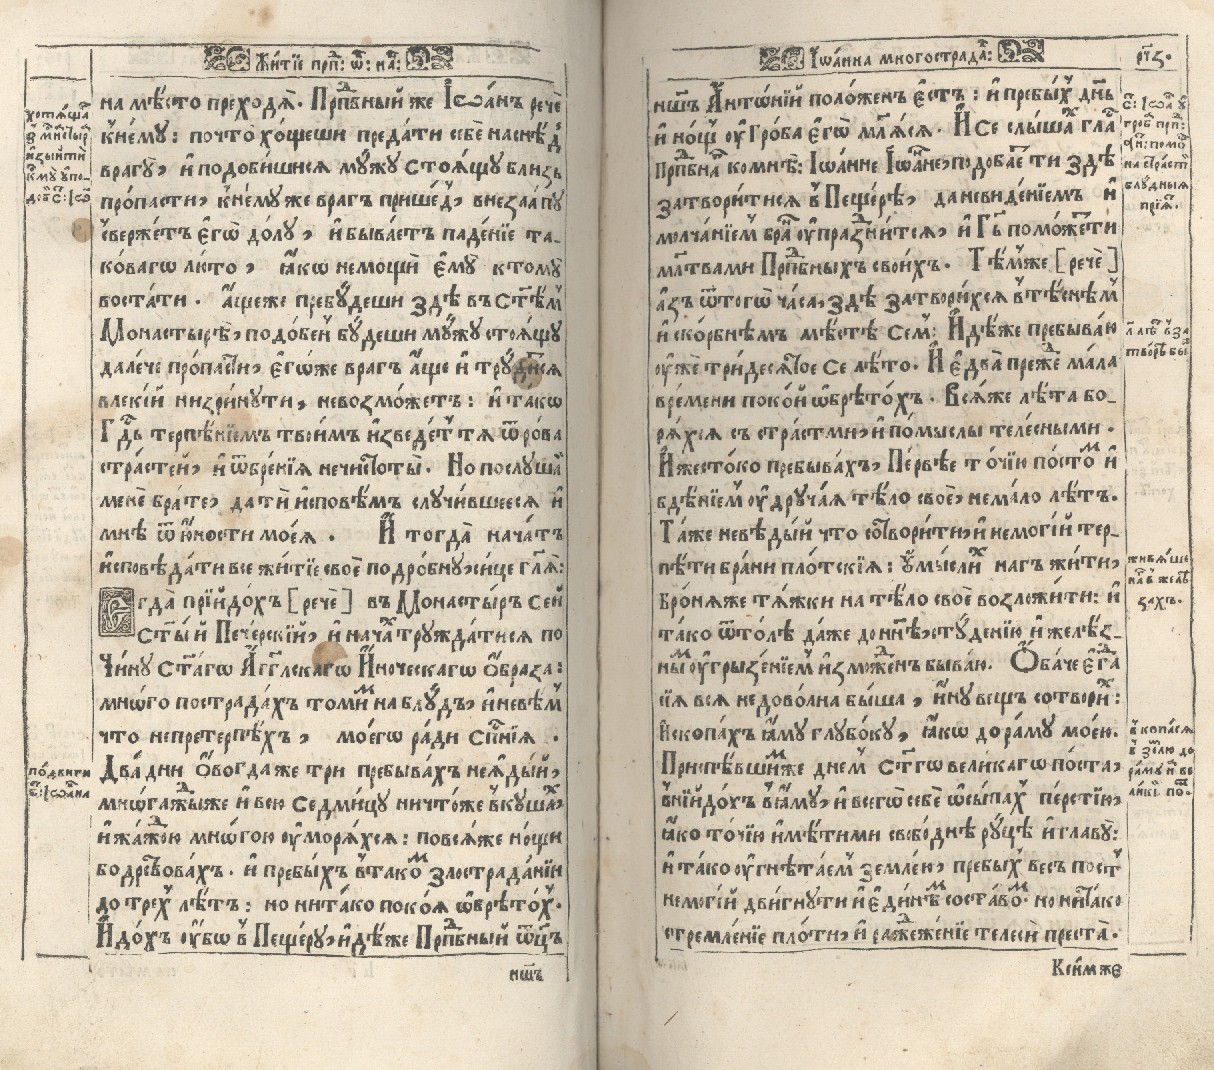 Жи́тїе прпⷣ: ѿ: на́:
на мѣ́сто преходѧ̀. Прпⷣбный же Іѡа́нъ речѐ
к̾немꙋ̀: почто̀ хо́щеши преда́ти себѐ на снѣ́дь
врагꙋ̀, и҆ подо́бишисѧ мꙋ́жꙋ стоѧ́щꙋ близь
про́пасти, к̾немꙋ́ же врагъ прише́дъ, внеза́апꙋ
све́ржетъ є҆го̀ до́лꙋ, и҆ быва́етъ паде́нїе та-
кова́гѡ лю́то, ꙗ҆́кѡ немощи̑ є҆мꙋ̀ ктомꙋ̀
воста́ти. А҆́ще же пребꙋ́деши здѣ̀ въ Ст҃ѣмъ
Монастырѣ̀, подо́бенъ бꙋ́деши мꙋ́жꙋ стоѧ́щꙋ
дале́че про́пасти, є҆го́же врагъ а҆́ще и҆ трꙋ́дитсѧ
влекі́й низри́нꙋти, невозмо́жетъ: и҆ та́кѡ
Гдⷭ҇ь терпѣ́нїемъ твои́мъ и҆зведе́тъ тѧ ѿ ро́ва
страсте́й, и҆ ѿ бре́нїѧ нечистоты̀. Но послꙋ́шай
менѐ бра́те, да тѝ и҆сповѣ́мъ слꙋчи́вшеесѧ и҆
мнѣ̀ ѿ ю҆́ности моеѧ̀. И҆ тогда̀ нача́тъ
и҆сповѣ́дати все житїѐ своѐ подро́бнꙋ, си́це гл҃ѧ:
Єгда̀ прїидо́хъ [речѐ] въ Монасты́ръ сей
Ст҃ы́й Пече́рскїй, и҆ нача́хъ трꙋжда́тисѧ по
Чи́нꙋ Ст҃а́гѡ А҆́гг҃лскагѡ И҆́ноческагѡ Ѻ҆́браза:
мно́гѡ пострада́хъ томи́мъ на блꙋ́дъ, и҆ невѣ́мъ
что непретерпѣ́хъ, моегѡ̀ ра́ди Сп҃се́нїѧ.
Два̀ дни Ѻ҆вогда́ же три пребыва́хъ неꙗ҆ды́й,
мно́гажды же и҆ всю̀ Седми́цꙋ ничто́же вкꙋша́хъ,
и҆ жа́ждою мно́гою ᲂу҆морѧ́хсѧ: по всѧ́ же но́щи
бодрствова́хъ. и҆ пребы́хъ в̾тако́мъ злострада́нїи
до тре́хъ лѣ́тъ: но ни та́ко поко́ѧ ѡ҆брѣто́хъ.
И҆до́хъ ᲂу҆́бѡ в̾ Пеще́рꙋ, и҆дѣ́же Прпⷣбный ѻ҆ц҃ъ
нш҃ъ
хотѧ́ща
з̾ мн҃стырѧ̀
и҆зы́йти
к̾емꙋ̀ ᲂу҆по-
до: в̾ С: Іѡ҃
по́двиги
С҃: Іѡа́нна
Іѡа́нна многострадⷧ҇:
рг҃і.
нш҃ъ А҆нтѡ́нїй поло́женъ є҆́стъ: и҆ пребы́хъ дн҃ь
и҆ но́щъ ᲂу҆ Гро́ба є҆гѡ̀ мл҃ѧсѧ. И҆ се слы́шахъ гла́съ
Прпⷣбнагѡ ко мнѣ̀: Іѡа́нне Іѡа́нне, подоба́етъ ти здѣ̀
затвори́тисѧ в̾ Пеще́рѣ, да неви́денїемъ и҆
молча́нїемъ бра́нь ᲂу҆праздни́тсѧ, и҆ Гдⷭ҇ь помо́жетъ ти
мл҃твами Прпⷣбныхъ свои́хъ. Тѣ́мже [речѐ]
а҆́зъ ѿтогѡ̀ часа̀, здѣ̀ затвори́хсѧ в̾тѣ́снѣмъ
и҆ ско́рбнѣмъ мѣ́стѣ се́мъ: И҆дѣ́же пребыва́ю
ᲂу҆жѐ тридесѧ́тое се лѣ́то. И҆ є҆два̀ пре́жде ма́ла
вре́мени поко́й ѡ҆брѣто́хъ. Всѧ́ же лѣ́та бо-
рѧ́хсѧ съ страстьмѝ, и҆ по́мыслы телесны́ми.
И҆ жесто́ко пребыва́хъ, Пе́рвѣе то́чїю посто́мъ и҆
бдѣ́нїемъ ᲂу҆дрꙋча́ѧ тѣ́ло своѐ, нема́ло лѣ́тъ.
Та́же невѣ́дый что сотвори́ти, и҆ немогі́й тер-
пѣ́ти бра́ни пло́тскїѧ: ᲂу҆мы́слихъ на́гъ жи́ти,
бронѧ́же тѧ́жки на тѣ́ло своѐ возложи́ти: и҆
та́ко ѿто́лѣ да́же до нн҃ѣ, стꙋ́денїю и҆ желѣ́з-
нымъ ᲂу҆грызе́нїемъ и҆змо́жденъ быва́ю. Ѻ҆ба́че є҆гда̀
сїѧ̀ всѧ̀ недово́лна бы́ша, и҆́нꙋ ве́щъ сотвори́хъ:
И҆скопа́хъ ꙗ҆́мꙋ глꙋбо́кꙋ, ꙗ҆́кѡ до ра́мꙋ мое́ю.
Приспѣ́вшим̾же дне́мъ Ст҃гѡ вели́кагѡ по́ста,
вни́йдохъ в̾ꙗ҆́мꙋ, и҆ всего̀ себѐ ѡ҆сы́пахъ пе́рстїю,
ꙗ҆́ко то́чїю и҆мѣ́ти ми свобо́днѣ рꙋ́цѣ и҆ главꙋ̀:
и҆ та́ко ᲂу҆гнѣта́емъ земле́ю, пребы́хъ весь постъ
немогі́й дви́гнꙋти и҆ є҆ди́нѣмъ соста́вомъ. но ни та́ко
стремле́нїе пло́ти, и҆ ражеже́нїе те́леси преста̀.
К си́мже
С҃: Іѡа҃ ᲂу҆
гро́ба прпⷣ:
Ан: помо́щъ
на стра́стъ
блꙋ́дныѧ
прїѧ̀.
л҃ лѣ́тъ в̾за
тво́рѣ бы̀
живѧ́ше
на́гъ в̾ желѣ́
захъ.
в̾копа́сѧ
в̾ зе́млю до
ра́мꙋ и҆ в̾ ве
ли́кїй по́: